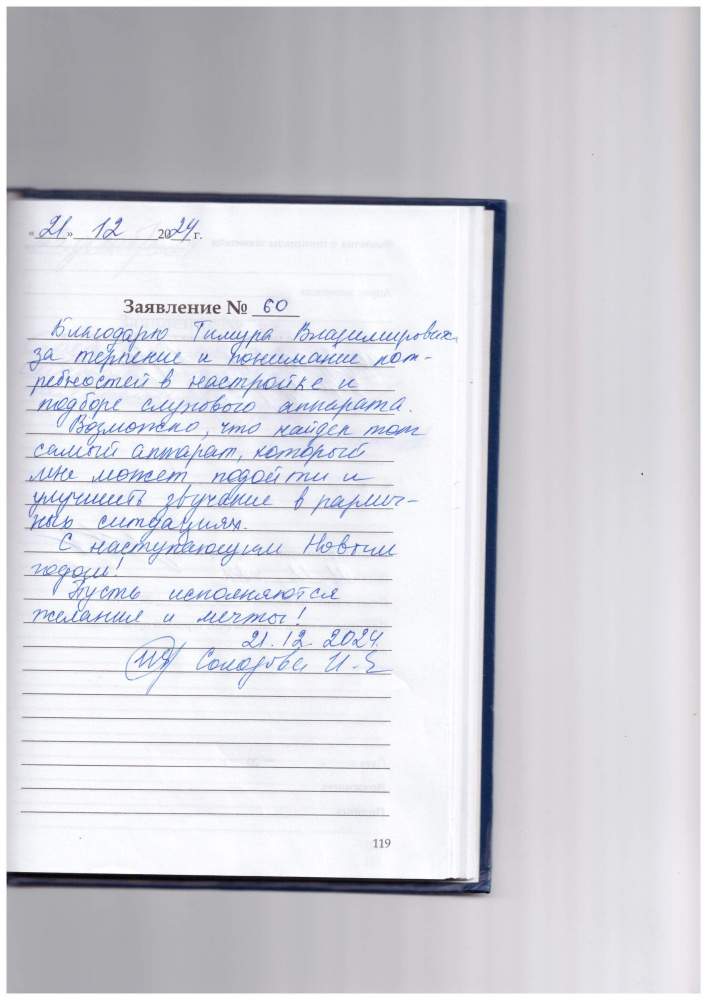 «21» 12 2024 г.
Заявление № 60
Благодарю Тимура Владимировича
за терпение и понимание пот-
ребностей в настройке и
подборе слухового аппарата.
Возможно, что найден тот
самый аппарат, который
мне может подойти и
улучшить звучание в различ-
ных ситуациях.
С наступающим Новым
годом!
Пусть исполняются
желания и мечты!
21.12.2024.
119